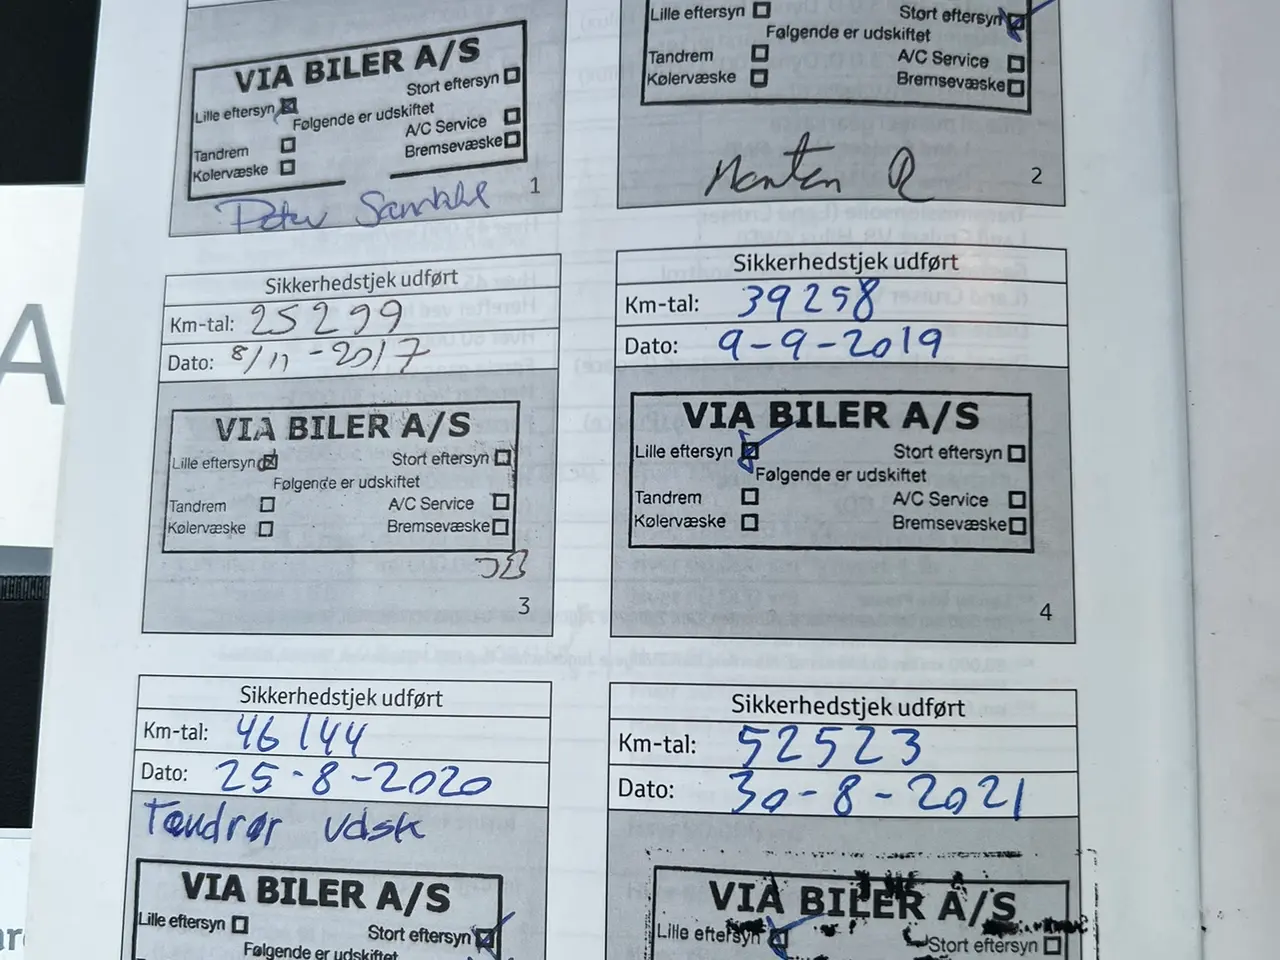 VIA BILER A/S
Lille eftersyn Stort eftersyn
Følgende er udskiftet
Tandrem A/C Service
Kølervæske Bremsevæske
Peter
1
Lille eftersyn Stort eftersyn
Følgende er udskiftet
Tandrem A/C Service
Kølervæske Bremsevæske
2
Sikkerhedstjek udført
Km-tal: 25299
Dato: 8/11-2017
VIA BILER A/S
Lille eftersyn Stort eftersyn
Følgende er udskiftet
Tandrem A/C Service
Kølervæske Bremsevæske
JB
3
Sikkerhedstjek udført
Km-tal: 39258
Dato: 9-9-2019
VIA BILER A/S
Lille eftersyn Stort eftersyn
Følgende er udskiftet
Tandrem A/C Service
Kølervæske Bremsevæske
4
Sikkerhedstjek udført
Km-tal: 46144
Dato: 25-8-2020
Tændrør udsk
VIA BILER A/S
Lille eftersyn Stort eftersyn
Følgende er udskiftet
Sikkerhedstjek udført
Km-tal: 52523
Dato: 30-8-2021
VIA BILER A/S
Lille eftersyn Stort eftersyn
A